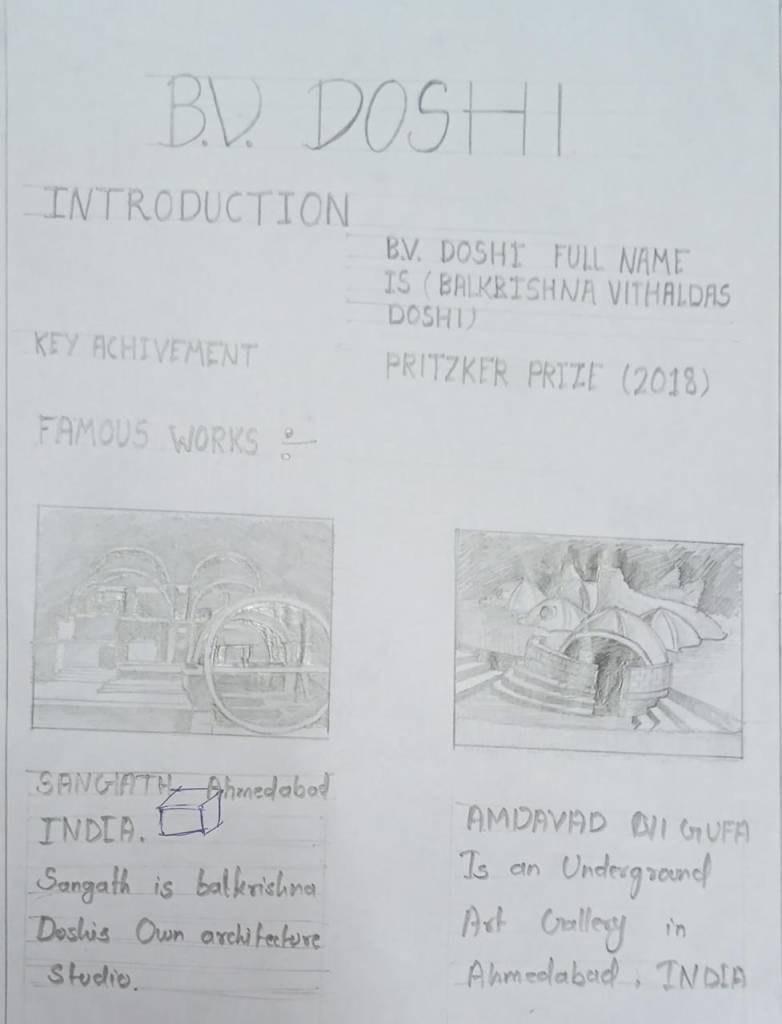 B.V. DOSHI
INTRODUCTION
B.V. DOSHI FULL NAME
IS (BALKRISHNA VITHALDAS
DOSHI)
KEY ACHIVEMENT
PRITZKER PRIZE (2018)
FAMOUS WORKS ÷
SANGATH Ahmedabad
INDIA.
Sangath is balkrishna
Doshis Own architecture
Studio.
AMDAVAD GUFA
Is an Underground
Art Gallery in
Ahmedabad, INDIA